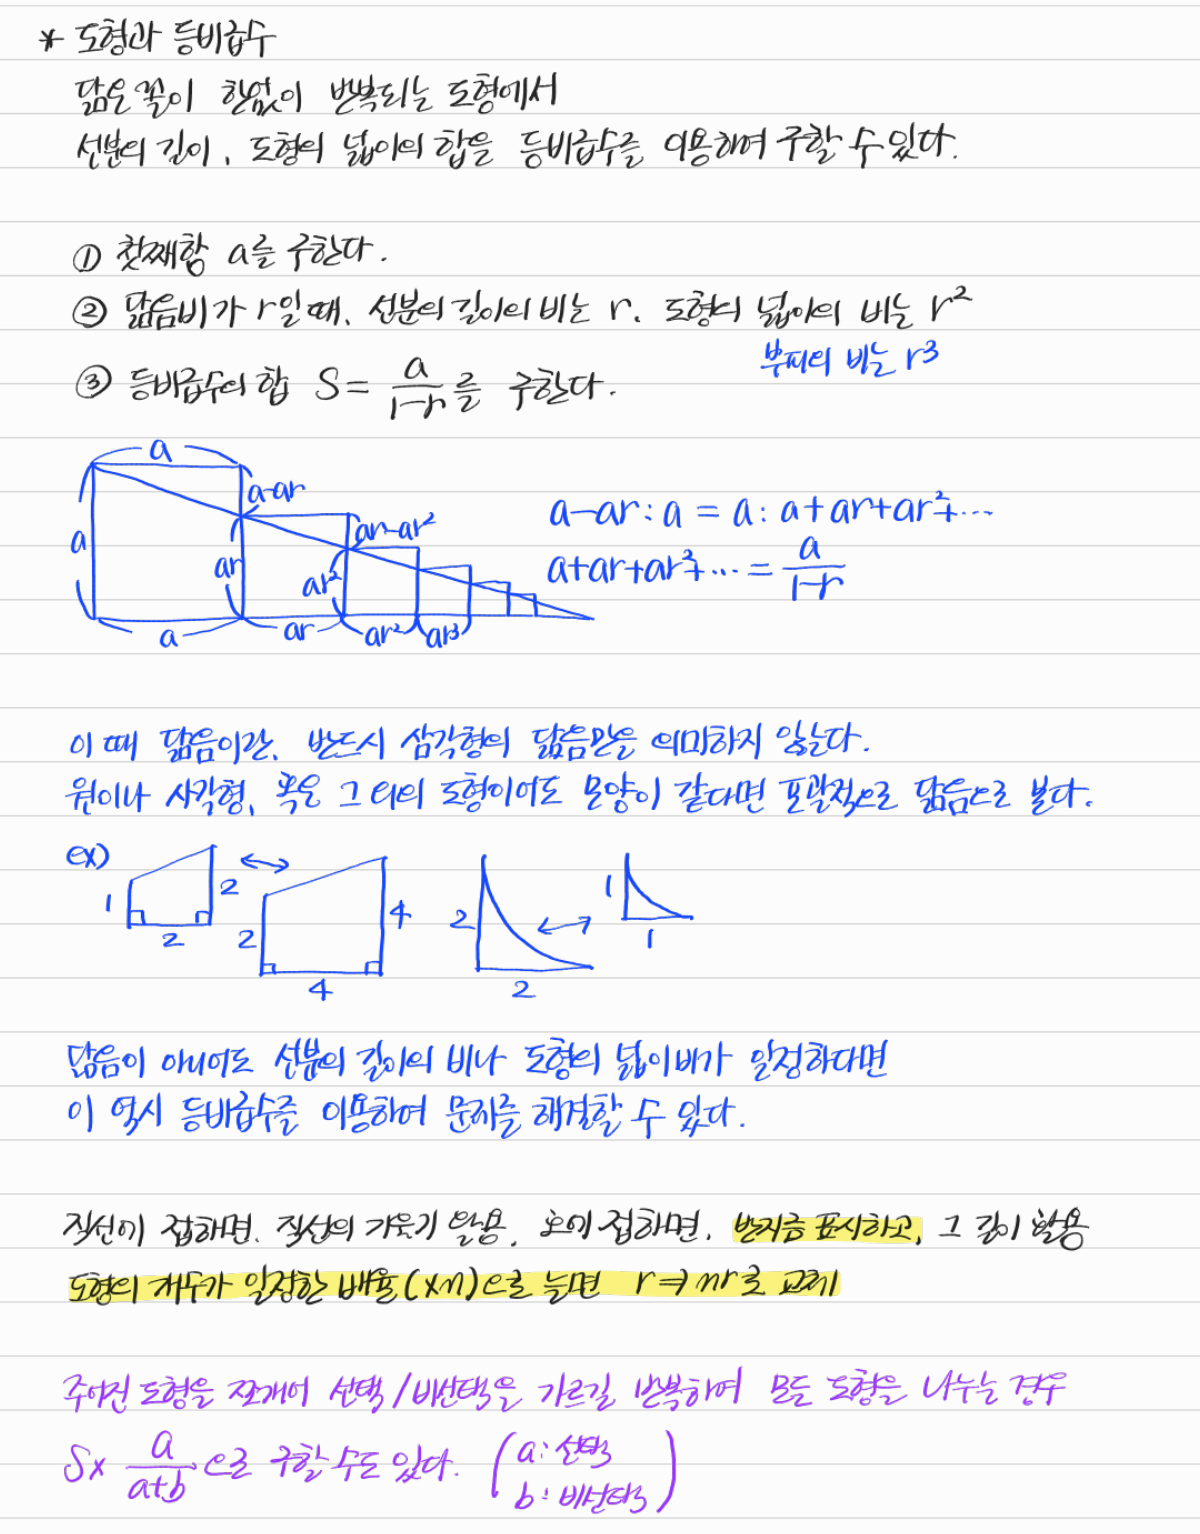 * 도형과 등비급수
닮은 꼴이 한없이 반복되는 도형에서
선분의 길이, 도형의 넓이의 합을 등비급수를 이용하여 구할 수 있다.
① 첫째항 a를 구한다.
② 닮음비가 r일 때, 선분의 길이의 비는 r, 도형의 넓이의 비는 r²
부피의 비는 r³
③ 등비급수의 합 S = a/(1-r) 를 구한다.
a
a-ar
a
ar-ar²
ar
ar²
a
ar
ar²
ar³
a-ar : a = a : a+ar+ar²+…
a+ar+ar²+… = a/(1-r)
이 때 닮음이란, 반드시 삼각형의 닮음만을 의미하지 않는다.
원이나 사각형, 혹은 그 외의 도형이어도 모양이 같다면 포괄적으로 닮음으로 본다.
ex)
1
2
2
2
4
4
2
2
1
1
닮음이 아니어도 선분의 길이의 비나 도형의 넓이비가 일정하다면
이 역시 등비급수를 이용하여 문제를 해결할 수 있다.
직선에 접하면, 직선의 기울기 활용, 호에 접하면, 반지름 표시하고, 그 길이 활용
도형의 개수가 일정한 배율(×n)으로 늘면 r → nr로 교체
주어진 도형을 쪼개어 선택/비선택을 가르길 반복하여 모든 도형을 나누는 경우
S× a/(a+b) 으로 구할 수도 있다. (a: 선택
b: 비선택)